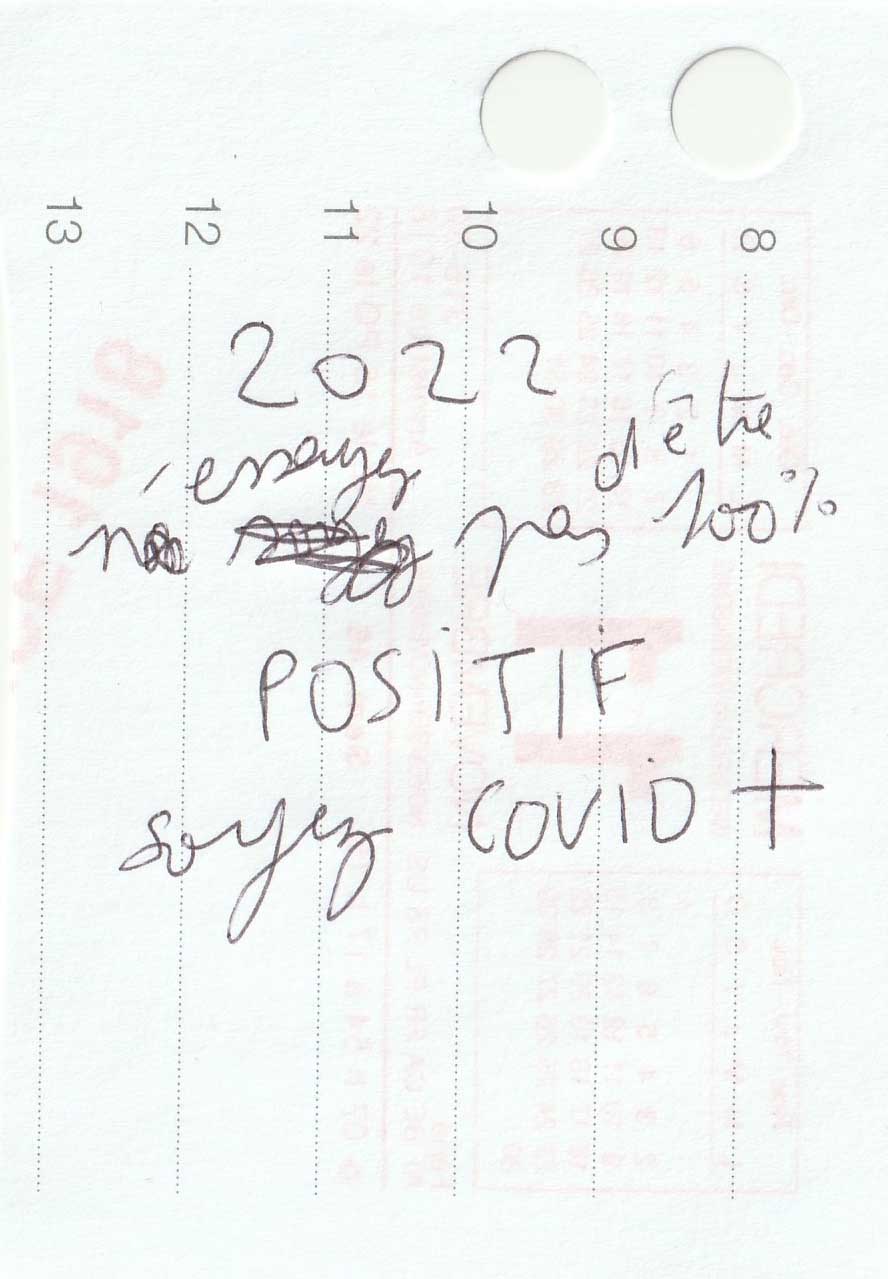 13 12 11 10 9 8
2022
n'essayez pas d'être 100%
POSITIF
soyez COVID +